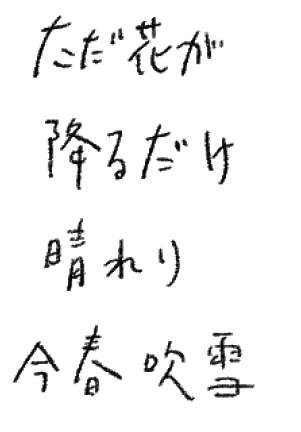 ただ花が
降るだけ
晴れり
今春吹雪